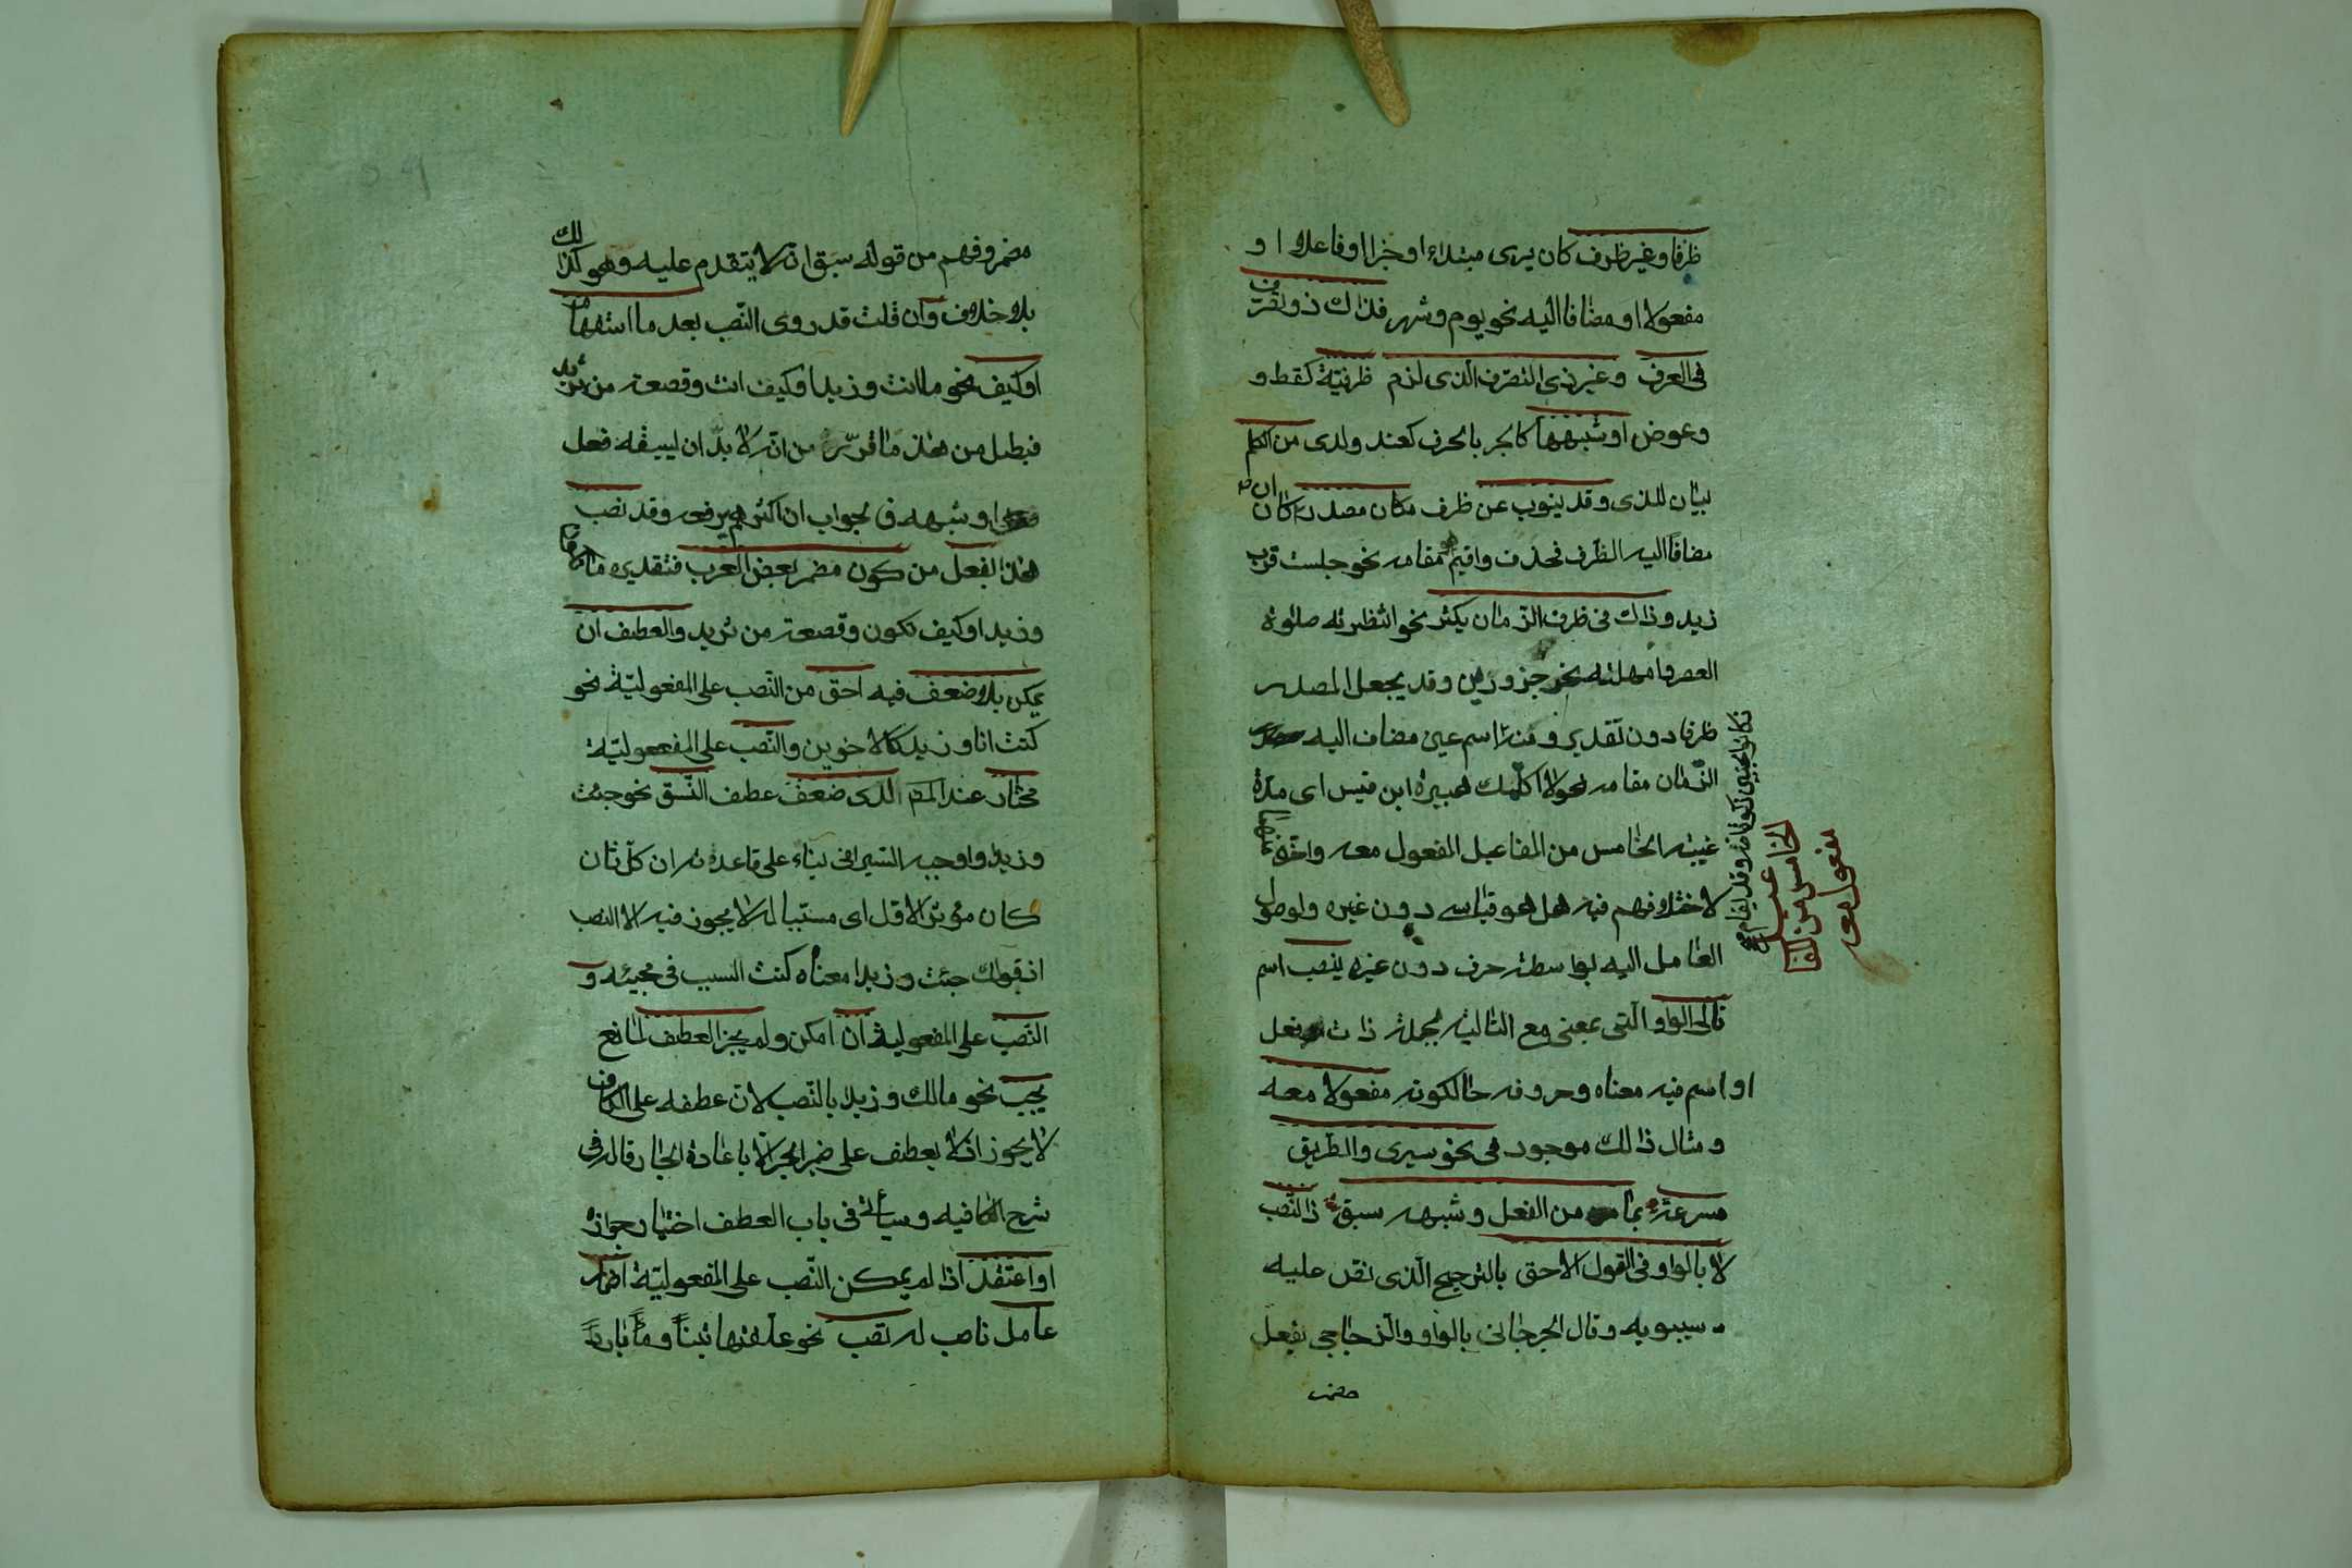 ظرفا وغير ظرف كان يرى مبتداء او خبرا او فاعلا او
مفعولا او مضافا اليه نحو يوم وشهر فذاك ذو تصرف
فى العرف وغير ذى التصرف الذى لزم ظرفية كقط و
وعوض او شبهها كالجر بالحرف كعند ولدى من الكلم
بيان للذى وقد ينوب عن ظرف مكان مصدر ان كان
مضافا اليه الظرف فحذف واقيم مقامه نحو جلست قرب
زيد وذاك فى ظرف الزمان يكثر نحو انتظرته صلوة
العصر وامهلته نحر جزورين وقد يجعل المصدر
ظرفا دون تقدير ومنه اسم عين مضاف اليه
الزمان مقامه نحو لا اكلمك هبيرة ابن قيس اى مدة
غيبته الخامس من المفاعيل المفعول معه واخره عنها
لاختلافهم فيه هل هو قياسى دون غيره ولوصول
العامل اليه بواسطة حرف دون غيره ينصب اسم
تالى الواو التى بمعنى مع التالية لجملة ذات فعل
او اسم فيه معناه وحروفه حالكونه مفعولا معه
ومثال ذالك موجود فى نحو سيرى والطريق
مسرعة بما من الفعل وشبهه سبق ذا النصب
لا بالواو فى القول الاحق بالترجيح الذى نص عليه
سيبويه وقال الجرجانى بالواو والزجاجى بفعل
مضمر
الخامس من
مفعول معه
مضمر وفهم من قوله سبق انه لا يتقدم عليه وهو كذلك
بلا خلاف وان قلت قد روى النصب بعد ما استفهام
او كيف نحو ما انت وزيدا وكيف انت وقصعة من ثريد
فبطل من هذا ما قرره من انه لا بد ان يسبقه فعل
او شبهه فالجواب ان اكثرهم يرفعه وقد نصب
هذا بفعل من كون مضمر بعض العرب فتقديره ما تكون
وزيدا وكيف تكون وقصعة من ثريد والعطف ان
يمكن بلا ضعف فيه احق من النصب على المفعولية نحو
كنت انا وزيد كالاخوين والنصب على المفعولية
مختار عند المص لدى ضعف عطف النسق نحو جئت
وزيدا واوجبه السيرافى بناء على قاعدته ان كل ثان
كان مؤثر الاول اى مسببا له لا يجوز فيه الا النصب
اذ قولك جئت وزيدا معناه كنت السبب فى مجيئه و
النصب على المفعولية ان امكن ولم يجز العطف لمانع
يجب نحو مالك وزيدا بالنصب لان عطفه على الكاف
لا يجوز اذ لا يعطف على ضمير الجر الا باعادة الجار قاله فى
شرح الكافيه وسيأتى فى باب العطف اختيار جوازه
او اعتقد اذا لم يمكن النصب على المفعولية اضمار
عامل ناصب له تصب نحو علفتها تبنا وماء باردا